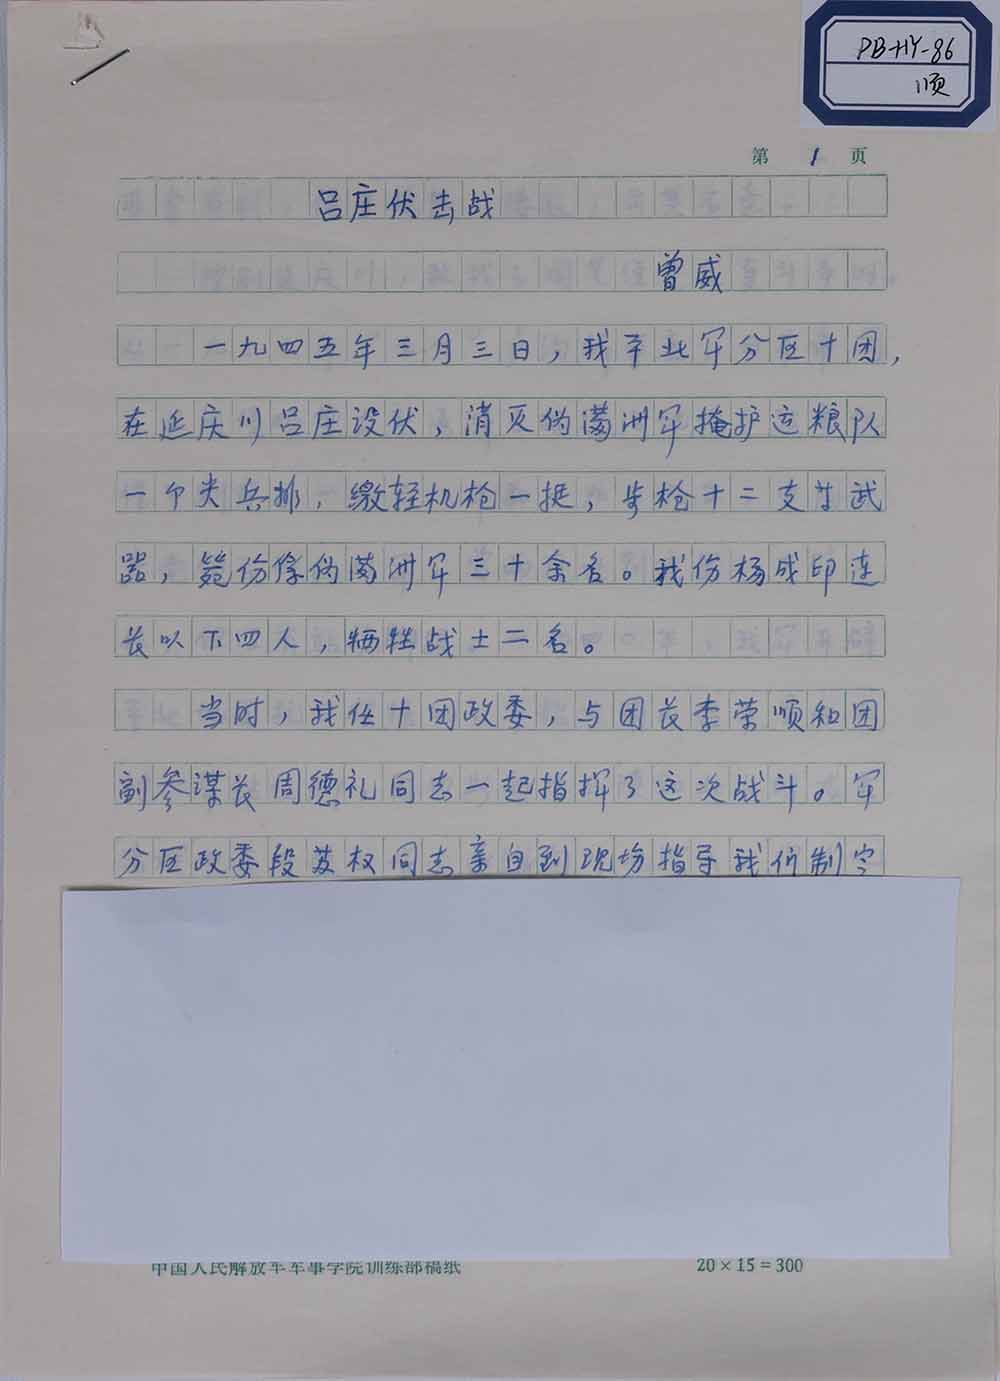 PB-HY-86
顺
第 1 页
吕庄伏击战
曾威
一九四五年三月三日，我平北军分区十团，
在延庆川吕庄设伏，消灭伪满洲军掩护运粮队
一个尖兵排，缴轻机枪一挺，步枪十二支等武
器，毙伤俘伪满洲军三十余名。我伤杨成印连
长以下四人，牺牲战士二名。
当时，我任十团政委，与团长李荣顺和团
副参谋长周德礼同志一起指挥了这次战斗。军
分区政委段苏权同志亲自到现场指导我们制定
中国人民解放军军事学院训练部稿纸
20×15=300